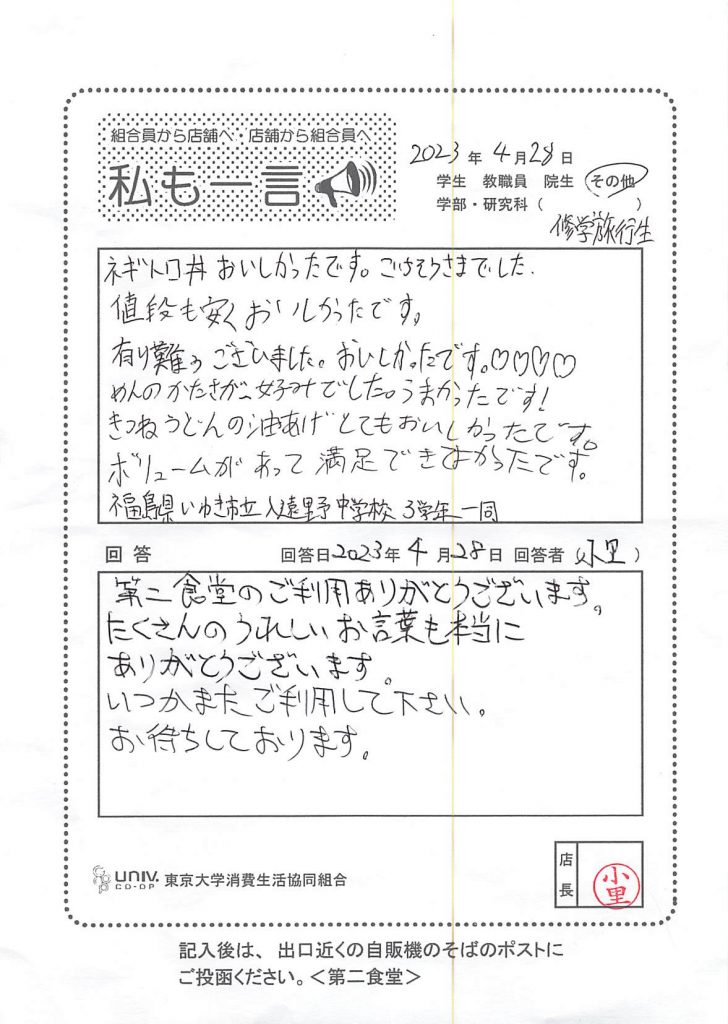 組合員から店舗へ・店舗から組合員へ
私も一言
2023年4月28日
学生 教職員 院生 その他
学部・研究科( )
修学旅行生
ネギトロ丼おいしかったです。ごちそうさまでした.
値段も安くおいしかったです。
有り難うございました。おいしかったです。♡♡♡♡
めんのかたさが、好みでした。うまかったです!
きつねうどんの油あげとてもおいしかったです。
ボリュームがあって満足できてよかったです。
福島県いわき市立入遠野中学校 3学年一同
回答 回答日2023年4月28日 回答者(小里)
第二食堂のご利用ありがとうございます。
たくさんのうれしいお言葉も本当に
ありがとうございます。
いつかまたご利用して下さい。
お待ちしております。
UNIV.
CO-OP
東京大学消費生活協同組合
店長
小里
記入後は、出口近くの自販機のそばのポストに
ご投函ください。<第二食堂>